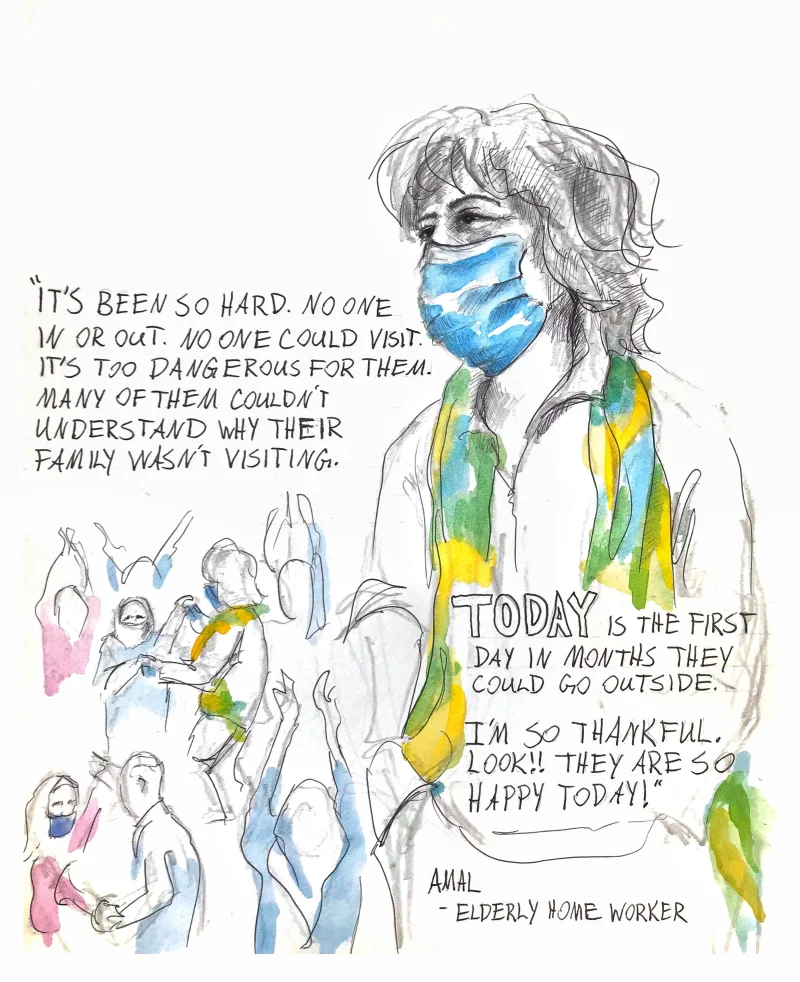 "IT'S BEEN SO HARD. NO ONE
IN OR OUT. NO ONE COULD VISIT.
IT'S TOO DANGEROUS FOR THEM.
MANY OF THEM COULDN'T
UNDERSTAND WHY THEIR
FAMILY WASN'T VISITING.
TODAY IS THE FIRST
DAY IN MONTHS THEY
COULD GO OUTSIDE.
I'M SO THANKFUL.
LOOK!! THEY ARE SO
HAPPY TODAY!"
AMAL
- ELDERLY HOME WORKER